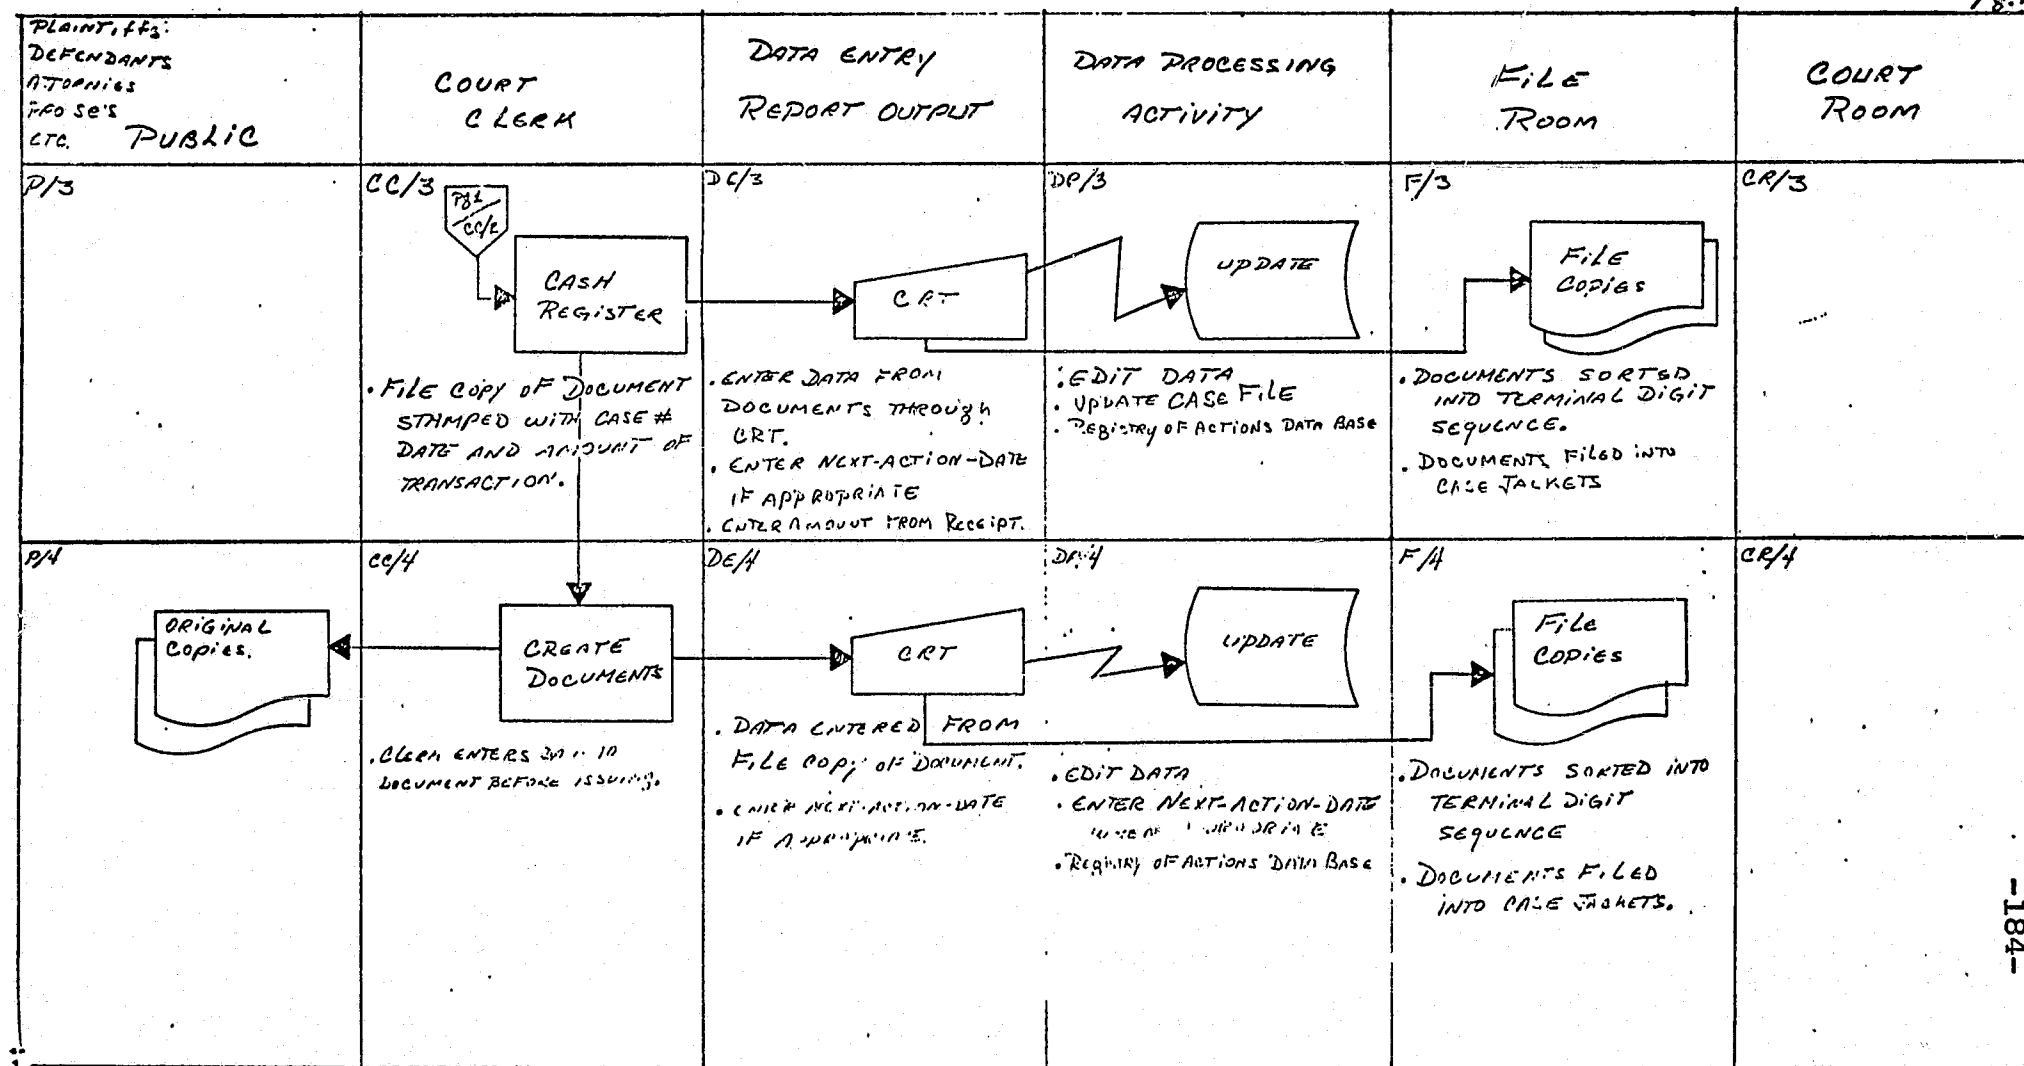 PLAINTIFFS:
DEFENDANTS
ATTORNIES
PRO SE'S
ETC. PUBLIC
COURT
CLERK
DATA ENTRY
REPORT OUTPUT
DATA PROCESSING
ACTIVITY
FILE
ROOM
COURT
ROOM
P/3
CC/3
Pg 1
CC/2
CASH
REGISTER
• FILE COPY OF DOCUMENT
STAMPED WITH CASE #
DATE AND AMOUNT OF
TRANSACTION.
DE/3
CRT
• ENTER DATA FROM
DOCUMENTS THROUGH
CRT.
• ENTER NEXT-ACTION-DATE
IF APPROPRIATE
• ENTER AMOUNT FROM RECEIPT.
DP/3
UPDATE
• EDIT DATA
• UPDATE CASE FILE
• REGISTRY OF ACTIONS DATA BASE
F/3
FILE
COPIES
• DOCUMENTS SORTED
INTO TERMINAL DIGIT
SEQUENCE.
• DOCUMENTS FILED INTO
CASE JACKETS
CR/3
P/4
ORIGINAL
COPIES.
CC/4
CREATE
DOCUMENTS
• CLERK ENTERS
DOCUMENT BEFORE ISSUING.
DE/4
CRT
• DATA ENTERED FROM
FILE COPY OF DOCUMENT.
• ENTER NEXT-ACTION-DATE
IF APPROPRIATE.
DP/4
UPDATE
• EDIT DATA
• ENTER NEXT-ACTION-DATE
WHEN APPROPRIATE
• REGISTRY OF ACTIONS DATA BASE
F/4
FILE
COPIES
• DOCUMENTS SORTED INTO
TERMINAL DIGIT
SEQUENCE
• DOCUMENTS FILED
INTO CASE JACKETS.
CR/4
-184-